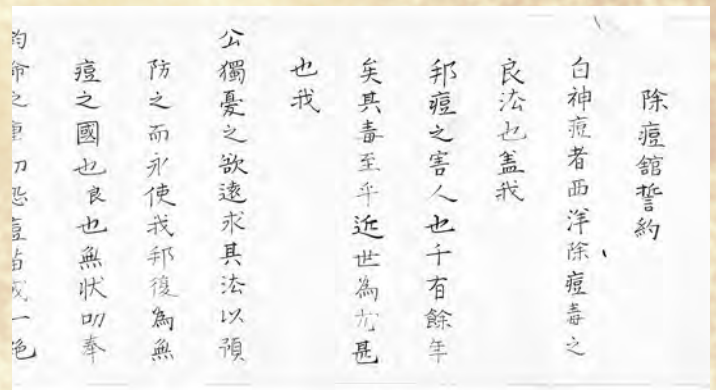 除痘館誓約
白神痘者西洋除痘毒之
良法也盖我
邦痘之害人也千有餘年
矣其毒至乎近世為尤甚
也我
公獨憂之欲遠求其法以預
防之而永使我邦復為無
痘之國也良也無状叨奉
命之重切恐痘苗或一絶